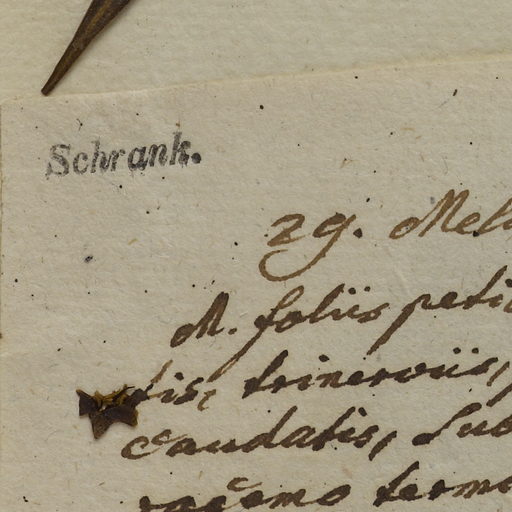 Schrank.
29. Mel
M. foliis peti
tis, trinerviis,
caudatis, sub
racemo term